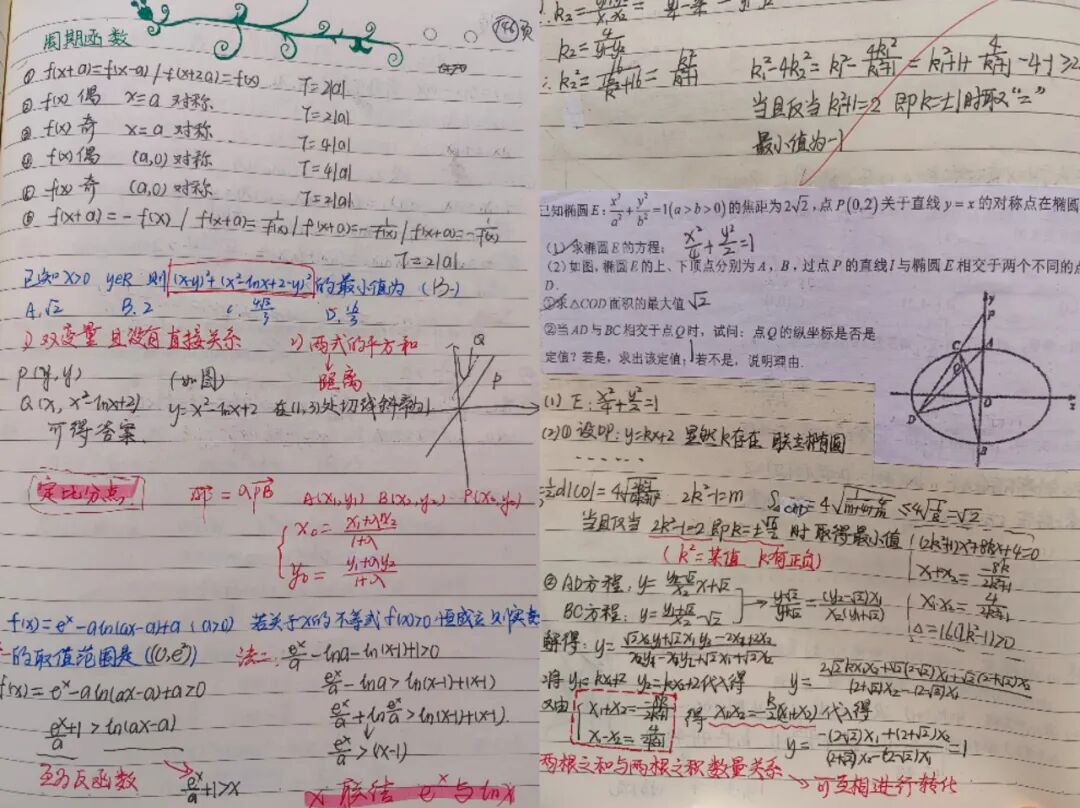 周期函数
146页
① f(x+a)=f(x-a) / f(x+2a)=f(x) T=2|a|
② f(x) 偶 x=a 对称 T=2|a|
③ f(x) 奇 x=a 对称 T=4|a|
④ f(x) 偶 (a,0) 对称 T=4|a|
⑤ f(x) 奇 (a,0) 对称 T=2|a|
⑥ f(x+a)=-f(x) / f(x+a)=1/f(x) / f(x+a)=-1/f(x) / f(x+a)=-1/f(x)
T=2|a|
已知x>0 y∈R 则 (x-y)²+(x²-lnx+2-y)² 的最小值为 (B)
A.√2 B.2 C.4√3/3 D.16/3
1) 双变量 且没有直接关系 2) 两式的平方和
距离
P(y,y) (如图)
Q(x, x²-lnx+2) y=x²-lnx+2 在(1,3)处切线斜率为1
可得答案.
Q
P
定比分点. AP=λPB A(x₁,y₁) B(x₂,y₂) P(x₀,y₀)
x₀=(x₁+λx₂)/(1+λ)
y₀=(y₁+λy₂)/(1+λ)
f(x)=eˣ-aln(ax-a)+a (a>0) 若关于x的不等式f(x)>0恒成立 则实数
的取值范围是 ((0,e²)) 法二: eˣ/a-lna-ln(x-1)+1>0
f(x)=eˣ-aln(ax-a)+a>0 eˣ/a-lna>ln(x-1)+(x-1)
eˣ/a+1>ln(ax-a) eˣ/a+lneˣ/a>ln(x-1)+(x-1)
eˣ/a>(x-1)
互为反函数 eˣ/a+1>x
x 联结 eˣ与lnx
k₂=4/y₁y₂
k₁²-4k₂²=k²-4k²/(k²+1)=k²+1+4/(k²+1)-4-1≥2
当且仅当k²+1=2 即k=±1时取"="
最小值为-1
已知椭圆E:x²/a²+y²/b²=1(a>b>0)的焦距为2√2,点P(0,2)关于直线y=x的对称点在椭圆
(1)求椭圆E的方程; x²/4+y²/2=1
(2)如图,椭圆E的上、下顶点分别为A,B,过点P的直线l与椭圆E相交于两个不同的点
D.
①求△COD面积的最大值 √2
②当AD与BC相交于点Q时,试问:点Q的纵坐标是否是
定值?若是,求出该定值;若不是,说明理由.
y
P
C
A
Q
O
x
D
B
(1) E:x²/4+y²/2=1
(2)① 设lDP:y=kx+2 显然k存在 联立椭圆
......
2k²-1=m S△COD=4√(1/(m+4+4/m))≤4√(1/8)=√2
当且仅当 2k²-1=2 即k=±√6/2 时取得最小值
(k²=某值 k有正负)
(2k²+1)x²+8kx+4=0
x₁+x₂=-8k/(2k²+1)
x₁·x₂=4/(2k²+1)
△=16(2k²-1)>0
② AD方程: y=(y₂-√2)/x₂ x+√2
BC方程: y=(y₁+√2)/x₁ x-√2
(y-√2)/(y+√2)=(y₂-√2)x₁/x₂(y₁+√2)
解得: y=(√2x₂y₁+√2x₁y₂-2x₁+2x₂)/(x₂y₁-x₁y₂+√2x₁+√2x₂)
将 y₁=kx₁+2 y₂=kx₂+2代入得
又由 x₁+x₂=-8k/(2k²+1) 得 代入得
x₁·x₂=4/(2k²+1)
y=(-(2-√2)x₁+(2+√2)x₂)/((2+√2)x₂-(2-√2)x₁)=1
两根之和与两根之积数量关系
可互相进行转化